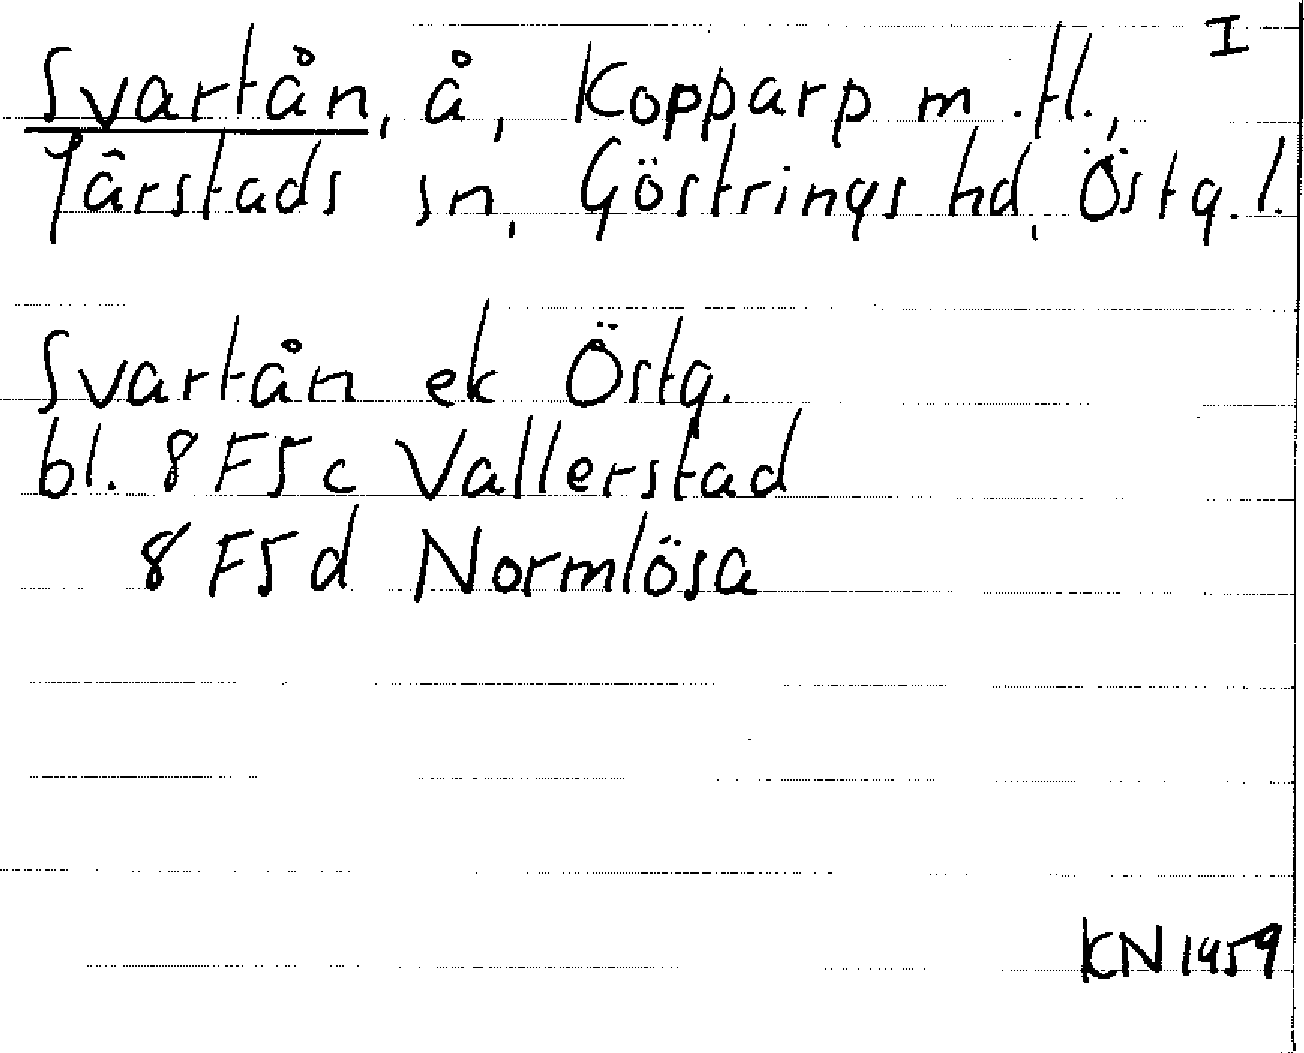 I
Svartån, å, Kopparp m.fl.,
Järstads sn, Göstrings hd, Östg.l.
Svartån ek Östg.
bl. 8F5c Vallerstad
8F5d Normlösa
KN 1959